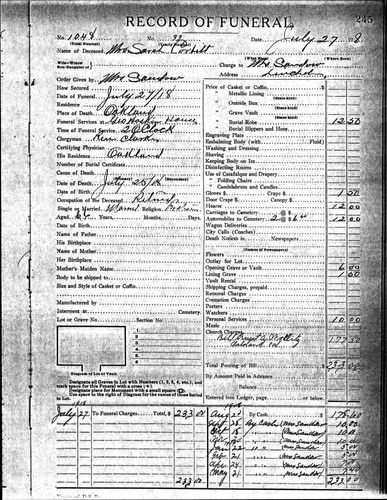 RECORD OF FUNERAL
245
No. 1048
(Total Number)
33
(Yearly Number)
Date July 27 18
Name of Deceased Mrs Sarah Corbitt
(When Born)
(Where Born)
Charge to Mrs Sandow
Address
Order Given by Mrs Sandow
How Secured
Date of Funeral July 27/18
Residence
Place of Death Oakland
Funeral Services at
Time of Funeral Service 2 O'Clock
Clergyman Rev. Clark
Certifying Physician
His Residence Oakland
Number of Burial Certificate
Cause of Death
Date of Death July 25/18
Occupation of the Deceased Retired
Single or Married Married Religion
Aged Years, Months, Days.
Date of Birth
Name of Father
His Birthplace
Name of Mother
Her Birthplace
Mother's Maiden Name
Body to be shipped to
Size and Style of Casket or Coffin
Manufactured by
Interment at Cemetery
Lot or Grave No. Section No.
Diagram of Lot or Vault.
Designate all Graves in Lot with Numbers (1, 2, 3, 4, etc.), and
mark space for this Funeral with a cross (+).
Designate place for Monument with a small square (□).
Use space to right of Diagram for the names of those buried
in Lot.
Price of Casket or Coffin $
" Metallic Lining
(State kind)
" Outside Box
(State kind)
" Grave Vault
(State kind)
" Burial Robe 12 50
(State kind)
" Burial Slippers and Hose
Engraving Plate
Embalming Body (with Fluid)
Washing and Dressing
Shaving
Keeping Body on Ice
Disinfecting Rooms
Use of Catafalque and Drapery
" Folding Chairs
" Candelabrum and Candles
Gloves $ Crape $ 1 50
Door Crape $ Canopy $
Hearse 12 00
Carriages to Cemetery @ $
Automobiles to Cemetery 2 @ $ 6 00 12 00
Wagon Deliveries
City Calls (Coaches)
Death Notices in Newspapers
(Names of Newspapers)
Flowers
Outlay for Lot
Opening Grave or Vault 6 00
Lining Grave 1 00
Vault Rental
Shipping Charges, prepaid
Removal Charges
Cremation Charges
Porters
Watchers
Personal Services 10 00
Music
Church Charges
Oakland, Cal
177 50
Total Footing of Bill $ 233 00
By Amount Paid in Advance
Balance
Enter into Ledger, page or below.
July 27 To Funeral Charges, Total, $ 233 00
Aug 21 By Cash $ 175 60
Sept 25 By Cash (Mrs Sandow) 10 00
" (Mrs Sandow) 10 00
" (Mrs Sandow)
Jan 22 " (Mrs Sandow)
Feb 21 " (Mrs Sandow)
Apr 24 " (Mrs Sandow)
May 21 " (Mrs Sandow)
233 00
233 00